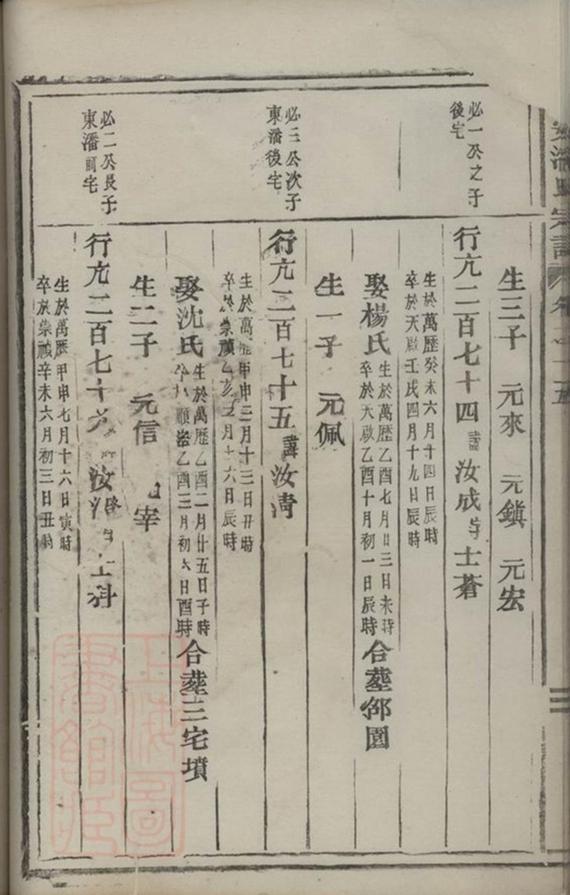 生三子 元來 元鎮 元宏
必一公之子
後宅
行亢二百七十四 諱汝成字士蒼
生於萬歷癸未六月十四日辰時
卒於天啟壬戌四月十九日辰時
娶楊氏
生於萬歷乙酉七月廿三日未時
卒於天啟乙酉十月初一日辰時
合塟邻園
生一子 元佩
必三公次子
東潘後宅
行亢二百七十五 諱汝淸
生於萬歷甲申三月十三日丑時
卒於崇禎乙亥 月十六日辰時
娶沈氏
生於萬歷乙酉二月廿五日子時
卒於順治乙酉三月初六日酉時
合塟三宅墳
生二子 元信 宰
必二公長子
東潘前宅
行亢二百七十六 諱汝 字士科
生於萬歷甲申七月十六日寅時
卒於崇禎辛未六月初三日丑時